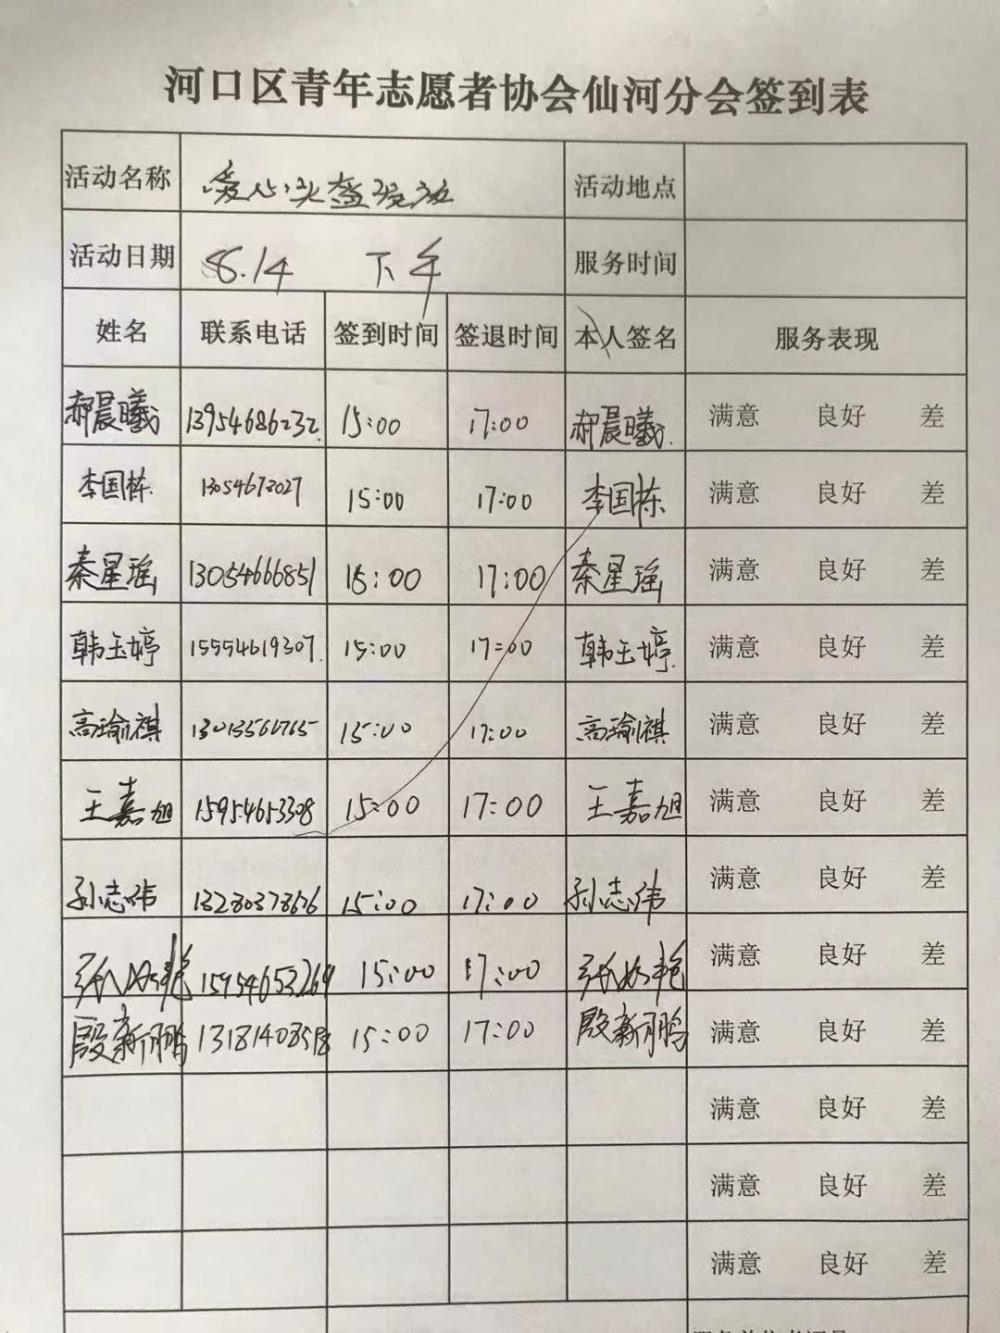 河口区青年志愿者协会仙河分会签到表
活动名称 爱心头盔 活动地点
活动日期 8.14 下午 服务时间
姓名 联系电话 签到时间 签退时间 本人签名 服务表现
郝晨曦 13954686232 15:00 17:00 郝晨曦 满意 良好 差
李国栋 15:00 17:00 李国栋 满意 良好 差
秦星瑶 13054666851 15:00 17:00 秦星瑶 满意 良好 差
韩玉婷 15554619307 15:00 17:00 韩玉婷 满意 良好 差
高瑜祺 15:00 17:00 高瑜祺 满意 良好 差
王嘉旭 15954653308 15:00 17:00 王嘉旭 满意 良好 差
孙志伟 15:00 17:00 孙志伟 满意 良好 差
15954653269 15:00 17:00 满意 良好 差
殷新鹏 13181408518 15:00 17:00 殷新鹏 满意 良好 差
满意 良好 差
满意 良好 差
满意 良好 差